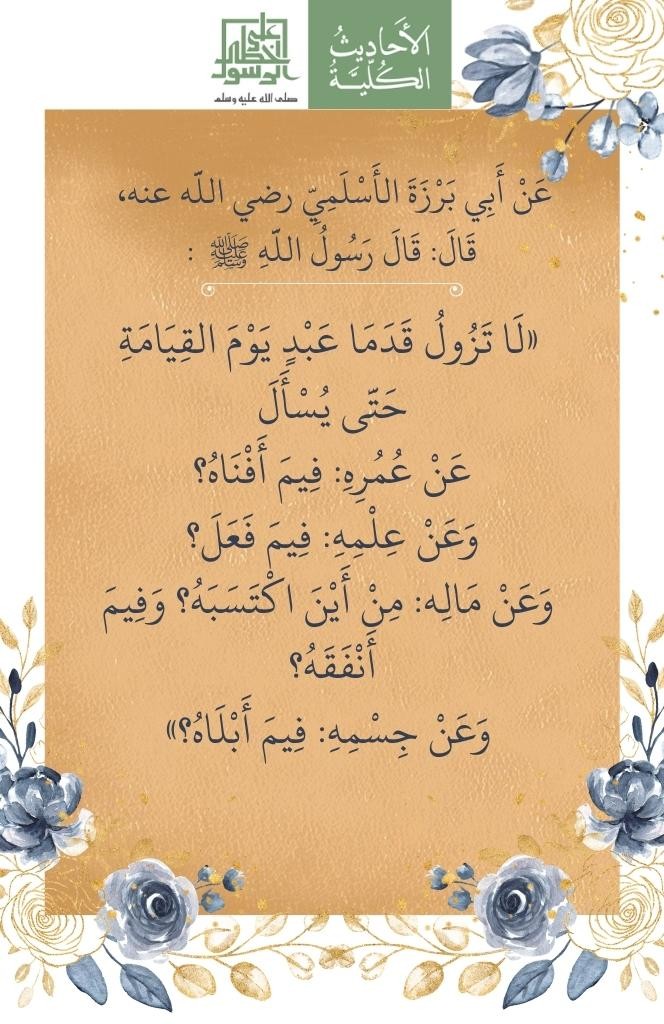 الأَحَادِيثُ
الكُلِّيَّةُ
على خطا الرسول
صلى الله عليه وسلم
عَنْ أَبِي بَرْزَةَ الأَسْلَمِيِّ رضي اللّه عنه،
قَالَ: قَالَ رَسُولُ اللّهِ ﷺ :
«لَا تَزُولُ قَدَمَا عَبْدٍ يَوْمَ القِيَامَةِ
حَتّى يُسْأَلَ
عَنْ عُمُرِهِ: فِيمَ أَفْنَاهُ؟
وَعَنْ عِلْمِهِ: فِيمَ فَعَلَ؟
وَعَنْ مَالِه: مِنْ أَيْنَ اكْتَسَبَهُ؟ وَفِيمَ
أَنْفَقَهُ؟
وَعَنْ جِسْمِهِ: فِيمَ أَبْلَاهُ؟»